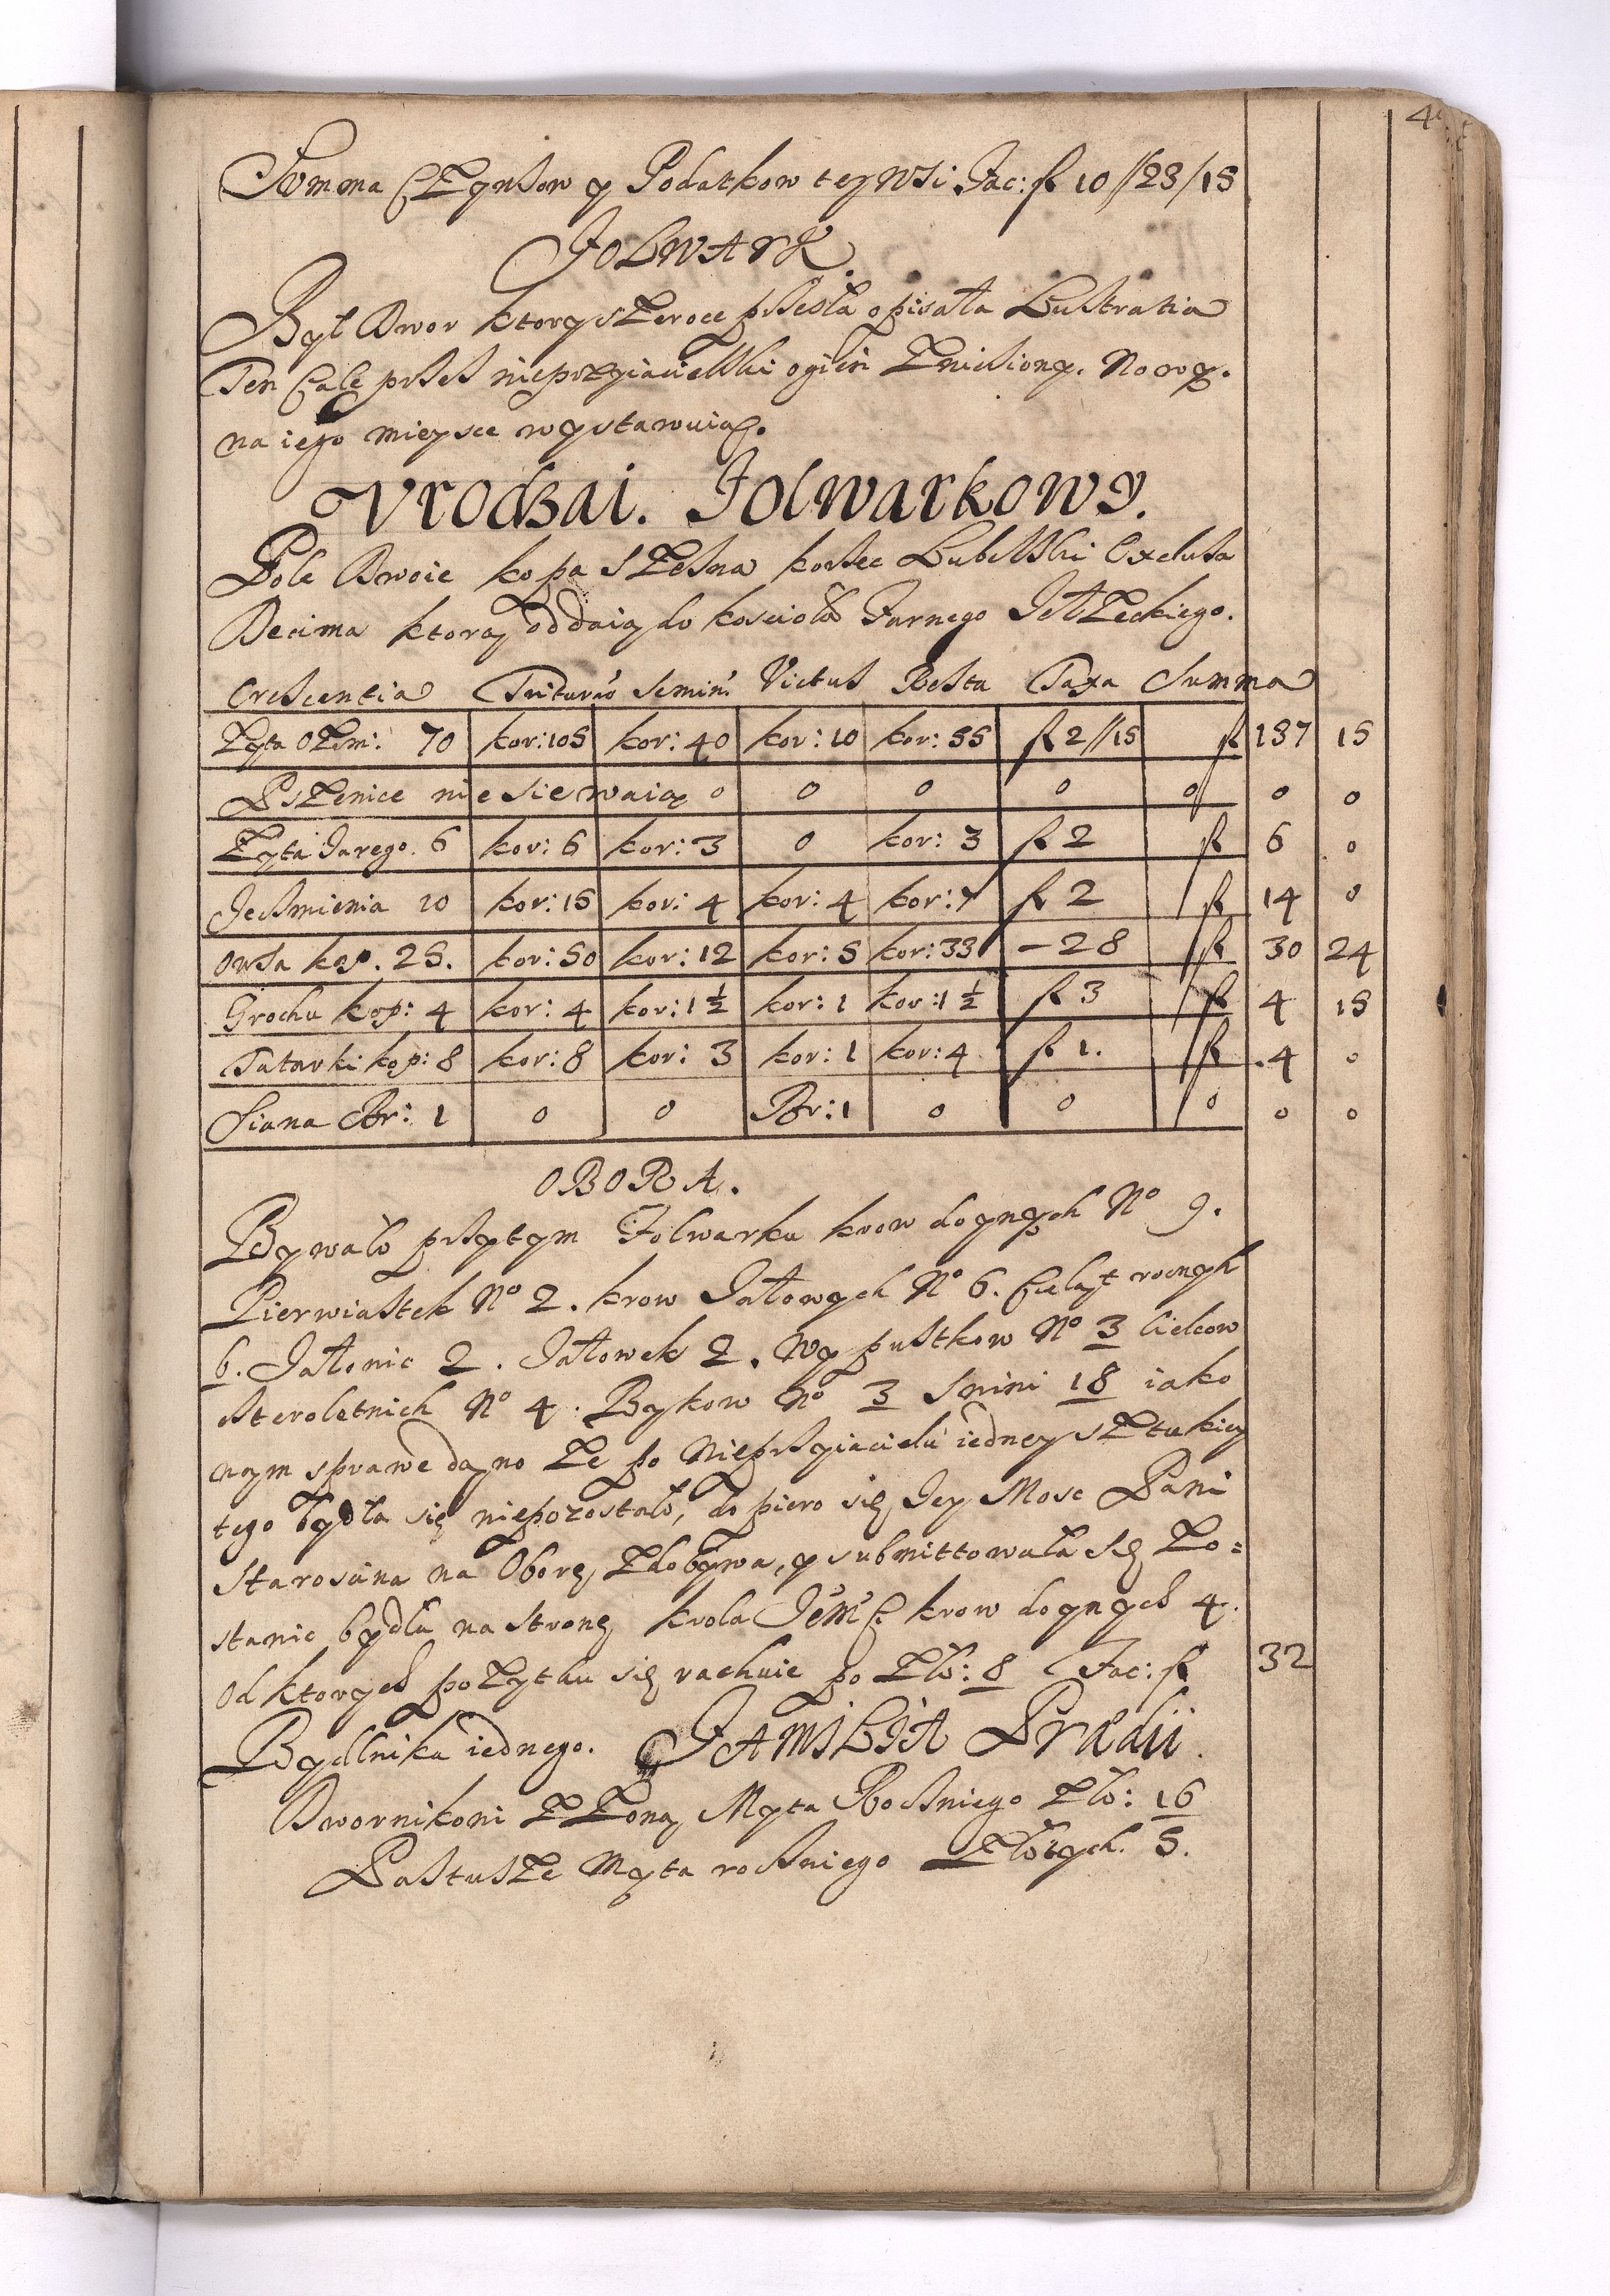 Summa Czynszow y Podatkow tey Wsi Fac: fl 10//23/15
FOLWARK
Był Dwor ktory szeroce przeszła opisała Lustratia
Ten Cale przes nieprzyiacielski ogień Zniesiony. Nowy.
na iego mieysce wystawuią.
Vrodzai. Folwarkowy.
Pole Dwoie kopa szesna korzec Lubelski Exclusa
Decima ktorą oddaią do koscioła Farnego Iełzeckiego.
Crescentia Triturao Semin: Victus Resta Taxa Summa
Zyta Ozim: 70 kor: 105 kor: 40 kor: 10 kor: 55 fl 2//15 fl 137 15
Pszenice nie siewaią 0 0 0 0 0 0 0
Zyta Iarego. 6 kor: 6 kor: 3 0 kor: 3 fl 2 fl 6 0
Ięczmienia 10 kor: 15 kor: 4 kor: 4 kor: 7 fl 2 fl 14 0
Owsa kop. 25. kor: 50 kor: 12 kor: 5 kor: 33 - 28 fl 30 24
Grochu kop: 4 kor: 4 kor: 1 ½ kor: 1 kor: 1 ½ fl 3 fl 4 15
Tatarki kop: 8 kor: 8 kor: 3 kor: 1 kor: 4 fl 1. fl 4 0
Siana Br: 1 0 0 Br: 1 0 0 0 0 0
OBORA.
Bywało przytym Folwarku krow doynych No 9.
Pierwiastek No 2. krow Iałowych No 6. Cieląt rocnych
6. Iałonic 2. Iałowek 2. Wypustkow No 3 Cielcow
szteroletnich No 4. Bykow No 3 Swini 18 iako
nąm sprawe dano Ze po Nieprzyiacielu iedney sztukiey
tego bydła się niepozostało, do piero się Iey Mosc Pani
Starosćina na Oborę Zdobywa, y submittowała się Zo=
stanic bydła na stronę krola krow doynych 4.
Od ktorych pozytku się rachuie po Zło: 8 Fac: fl 32
Bydlnika iednego. FAMILIA Prædii.
Dwornikoni Z Zoną Myta Roczniego Zło: 16
Pastusze Myta roczniego Złotych. 5.